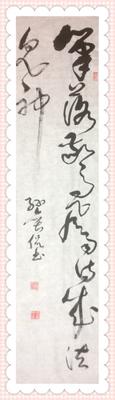 筆落驚風雨詩成泣
鬼神